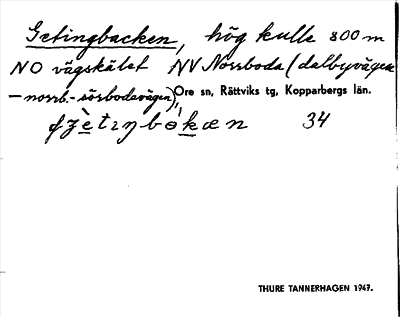 Getingbacken, hög kulle 800 m
NO vägskälet NV Norrboda (dalbyvägen
– norrb.- sörbodavägen), Ore sn, Rättviks tg, Kopparbergs län.
34
THURE TANNERHAGEN 1947.